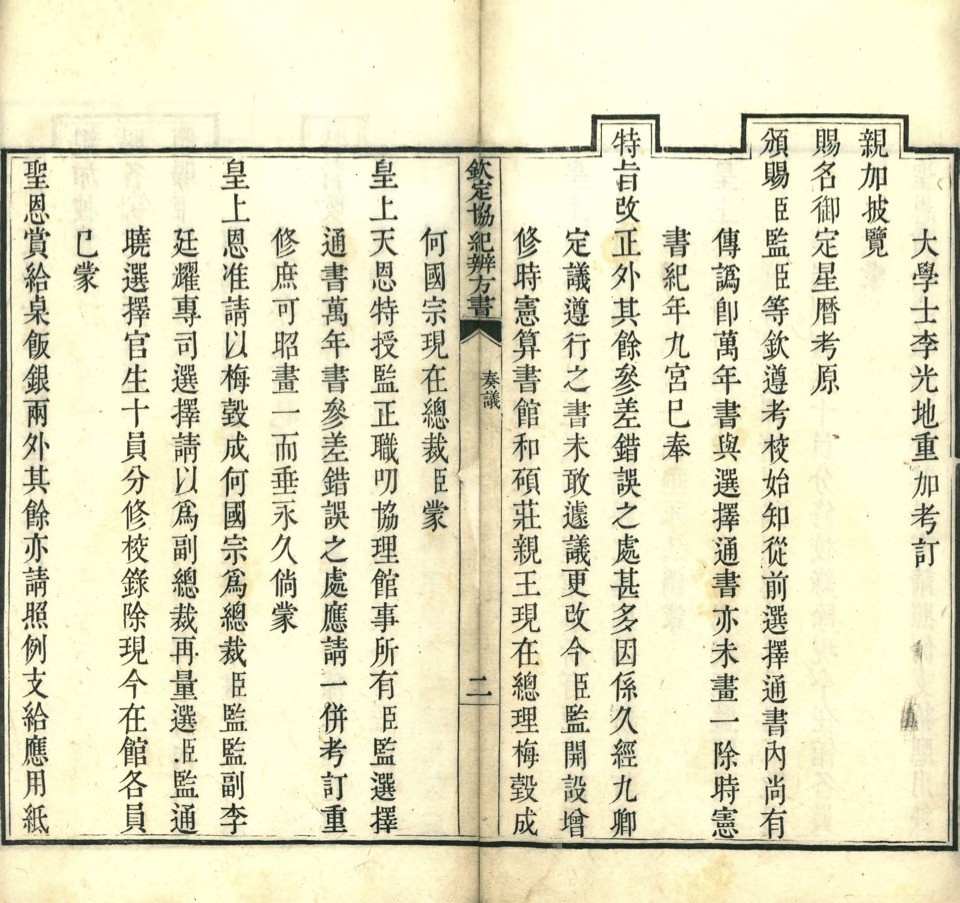 大學士李光地重加考訂
親加披覽
賜名御定星曆考原
頒賜臣監臣等欽遵考校始知從前選擇通書內尚有
傳譌卽萬年書與選擇通書亦未畫一除時憲
書紀年九宮已奉
特旨改正外其餘參差錯誤之處甚多因係久經九卿
定議遵行之書未敢遽議更改今臣監開設增
修時憲算書館和碩莊親王現在總理梅瑴成
欽定協紀辨方書
奏議
二
何國宗現在總裁臣蒙
皇上天恩特授監正職叨協理館事所有臣監選擇
通書萬年書參差錯誤之處應請一併考訂重
修庶可昭畫一而垂永久倘蒙
皇上恩准請以梅瑴成何國宗爲總裁臣監監副李
廷耀專司選擇請以爲副總裁再量選臣監通
曉選擇官生十員分修校錄除現今在館各員
已蒙
聖恩賞給桌飯銀兩外其餘亦請照例支給應用紙